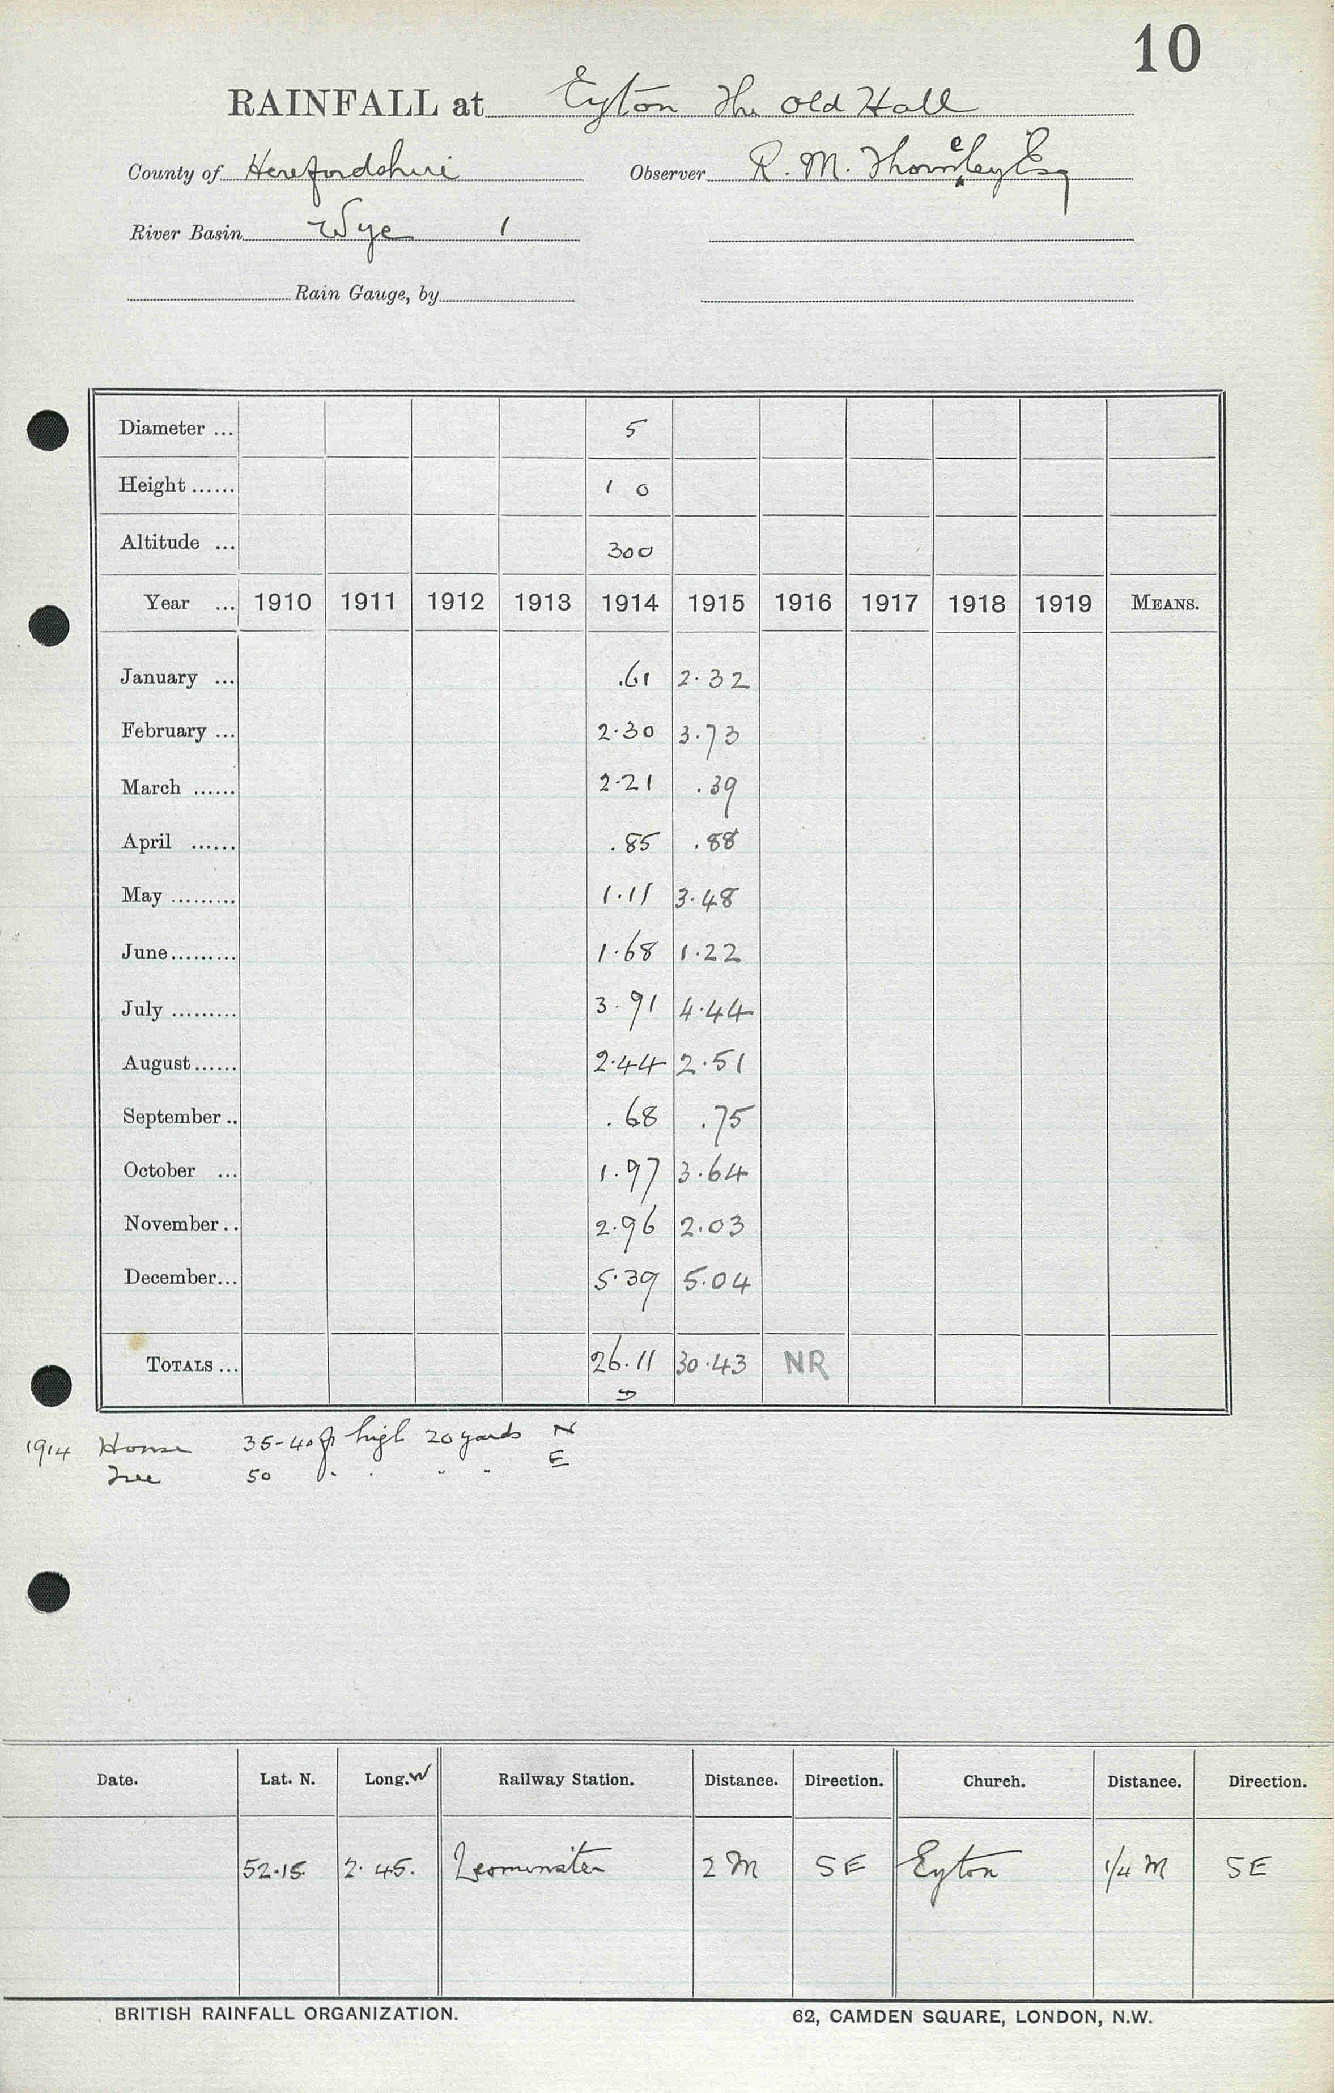 10
RAINFALL at Eyton The Old Hall
County of Herefordshire Observer R. M. Thorneley Esq
River Basin Wye 1
Rain Gauge, by
Diameter ... 5
Height ...... 1 0
Altitude ... 300
Year ... 1910 1911 1912 1913 1914 1915 1916 1917 1918 1919 MEANS.
January ... .61 2.32
February ... 2.30 3.73
March ...... 2.21 .39
April ...... .85 .88
May ......... 1.11 3.48
June ......... 1.68 1.22
July ......... 3.91 4.44
August ...... 2.44 2.51
September .. .68 .75
October ... 1.97 3.64
November .. 2.96 2.03
December ... 5.39 5.04
TOTALS ... 26.11 30.43 NR
1914 House 35-40 ft high 20 yards N
Tree 50 " " " " E
Date. Lat. N. Long. W Railway Station. Distance. Direction. Church. Distance. Direction.
52.15 2.45. Leominster 2 M SE Eyton 1/4 M SE
BRITISH RAINFALL ORGANIZATION. 62, CAMDEN SQUARE, LONDON, N.W.